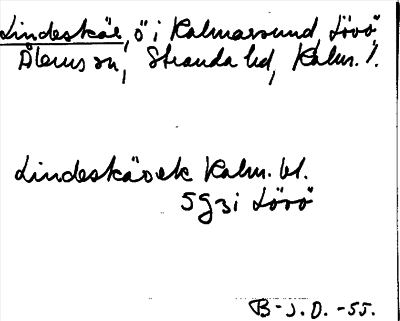 Lindeskär, ö i Kalmarsund, Lövö,
Ålems sn, Stranda hd, Kalm. l.
Lindeskär ek Kalm. bl.
5g3i Lövö
B-J.O. -55.